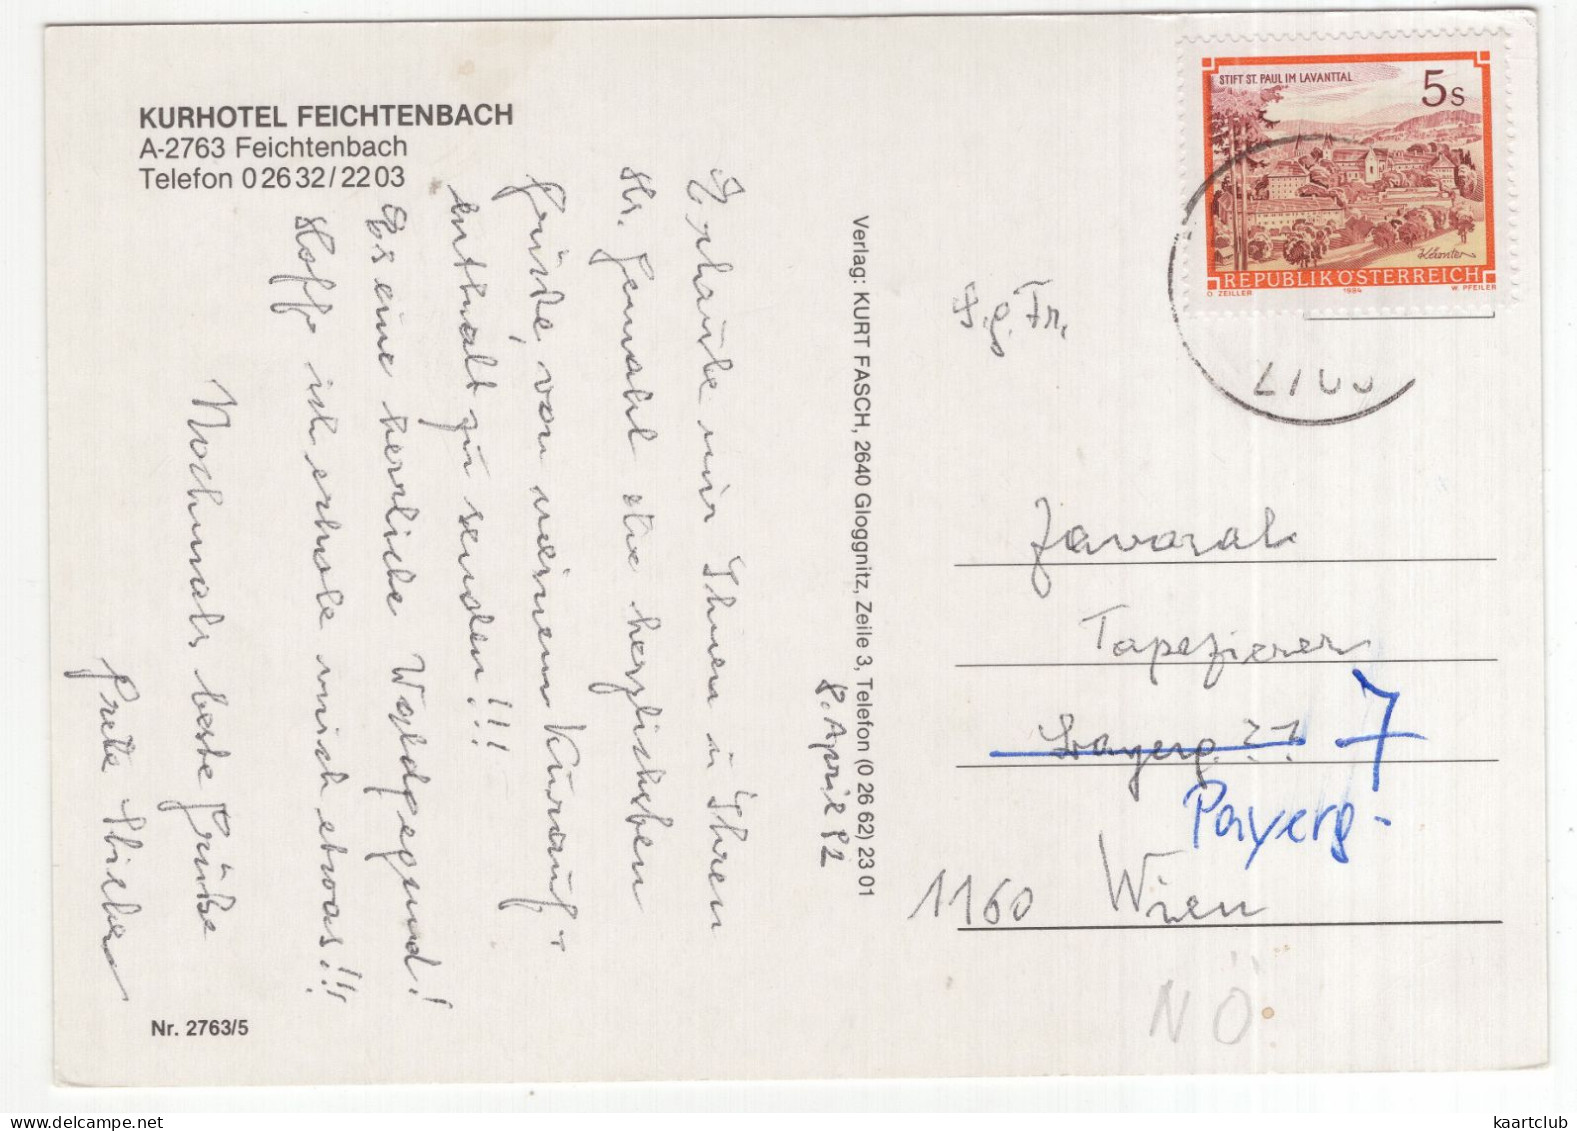 KURHOTEL FEICHTENBACH
A-2763 Feichtenbach
Telefon 0 26 32 / 22 03
Erlaube mir Ihnen u Ihren
Hr. Gemahl die herzlichsten
Grüße, von meinem Kurauf-
enthalt zu senden!!!
Es eine herrliche Waldgegend!
Hoff ich erhole mich etwas!!!
Nochmals beste Grüße
Grete
Nr. 2763/5
Verlag: KURT FASCH, 2640 Gloggnitz, Zeile 3, Telefon (0 26 62) 23 01
8. April 92
STIFT ST. PAUL IM LAVANTTAL
5s
Kärnten
REPUBLIK ÖSTERREICH
O. ZEILLER 1984 W. PFEILER
Fr.
Javorak
Tapezierer
7
Payerg-
1160 Wien
NÖ
kaartclub
www.delcampe.net